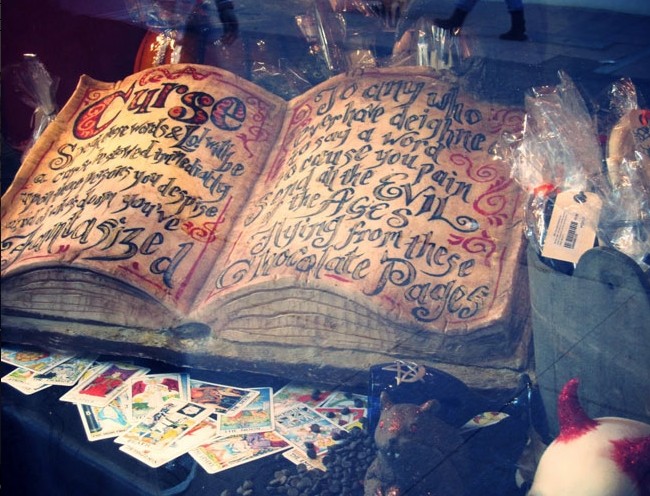 Curse
Speak these words & Lo! t will be
a curse instilled immediately
upon those persons you despise
and all doom you've
fantasized
To any who
ever have deighne
to say a word
to cause you Pain
send all the EVIL
of the AGES
flying from these
Chocolate Pages